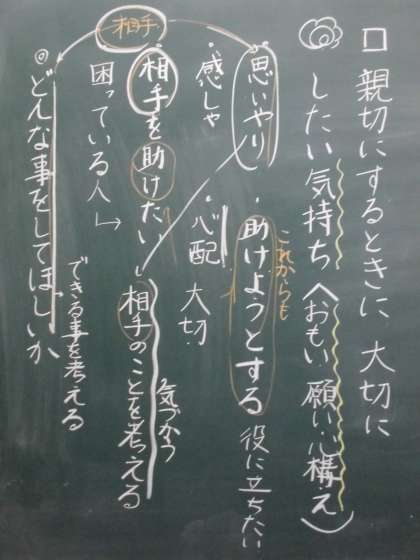 □ 親切にするときに 大切に
したい気持ち（おもい 願い 心構え）
これからも
思いやり ・助けようとする 役に立ちたい
・感しゃ ・心配 大切
・相手を助けたい 相手のことを考える
気づかう
困っている人
できる事を考える
◎どんな事をしてほしいか
相手